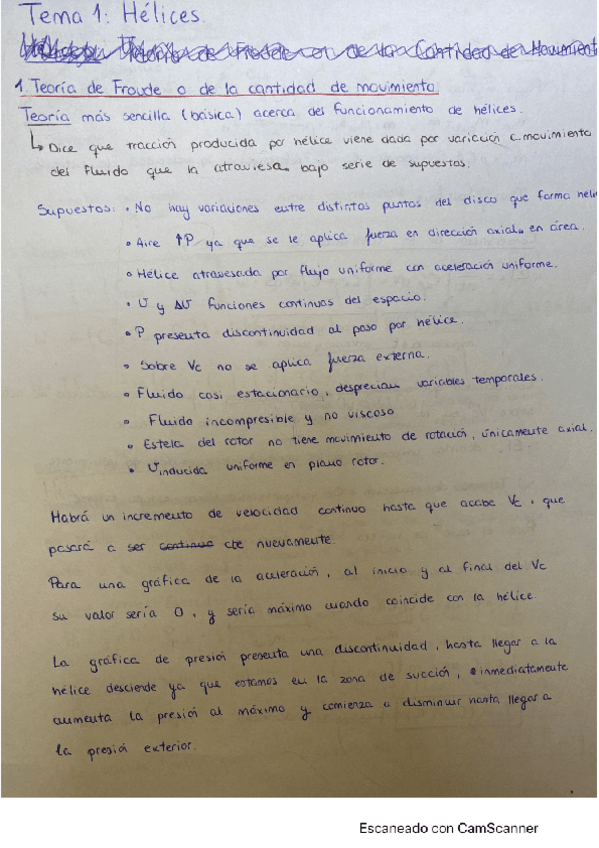 Tema 1: Hélices
de Froude o de la Cantidad de Movimiento
1. Teoría de Froude o de la cantidad de movimiento
Teoría más sencilla (básica) acerca del funcionamiento de hélices.
↳ Dice que tracción producida por hélice viene dada por variación c. movimiento
del fluido que la atraviesa bajo serie de supuestos.
Supuestos: • No hay variaciones entre distintos puntos del disco que forma héli
• Aire ↑P ya que se le aplica fuerza en dirección axial en área.
• Hélice atravesada por flujo uniforme con aceleración uniforme.
• U y ΔU funciones continuas del espacio.
• P presenta discontinuidad al paso por hélice.
• Sobre Vc no se aplica fuerza externa.
• Fluido casi estacionario, desprecian variables temporales.
• Fluido incompresible y no viscoso
• Estela del rotor no tiene movimiento de rotación, únicamente axial.
• Uinducida uniforme en plano rotor.
Habrá un incremento de velocidad continuo hasta que acabe Vc, que
pasará a ser continuo cte nuevamente.
Para una gráfica de la aceleración, al inicio y al final del Vc
su valor sería 0, y sería máximo cuando coincide con la hélice.
La gráfica de presión presenta una discontinuidad, hasta llegar a la
hélice desciende ya que estamos en la zona de succión, inmediatamente
aumenta la presión al máximo y comienza a disminuir hasta llegar a
la presión exterior.
Escaneado con CamScanner